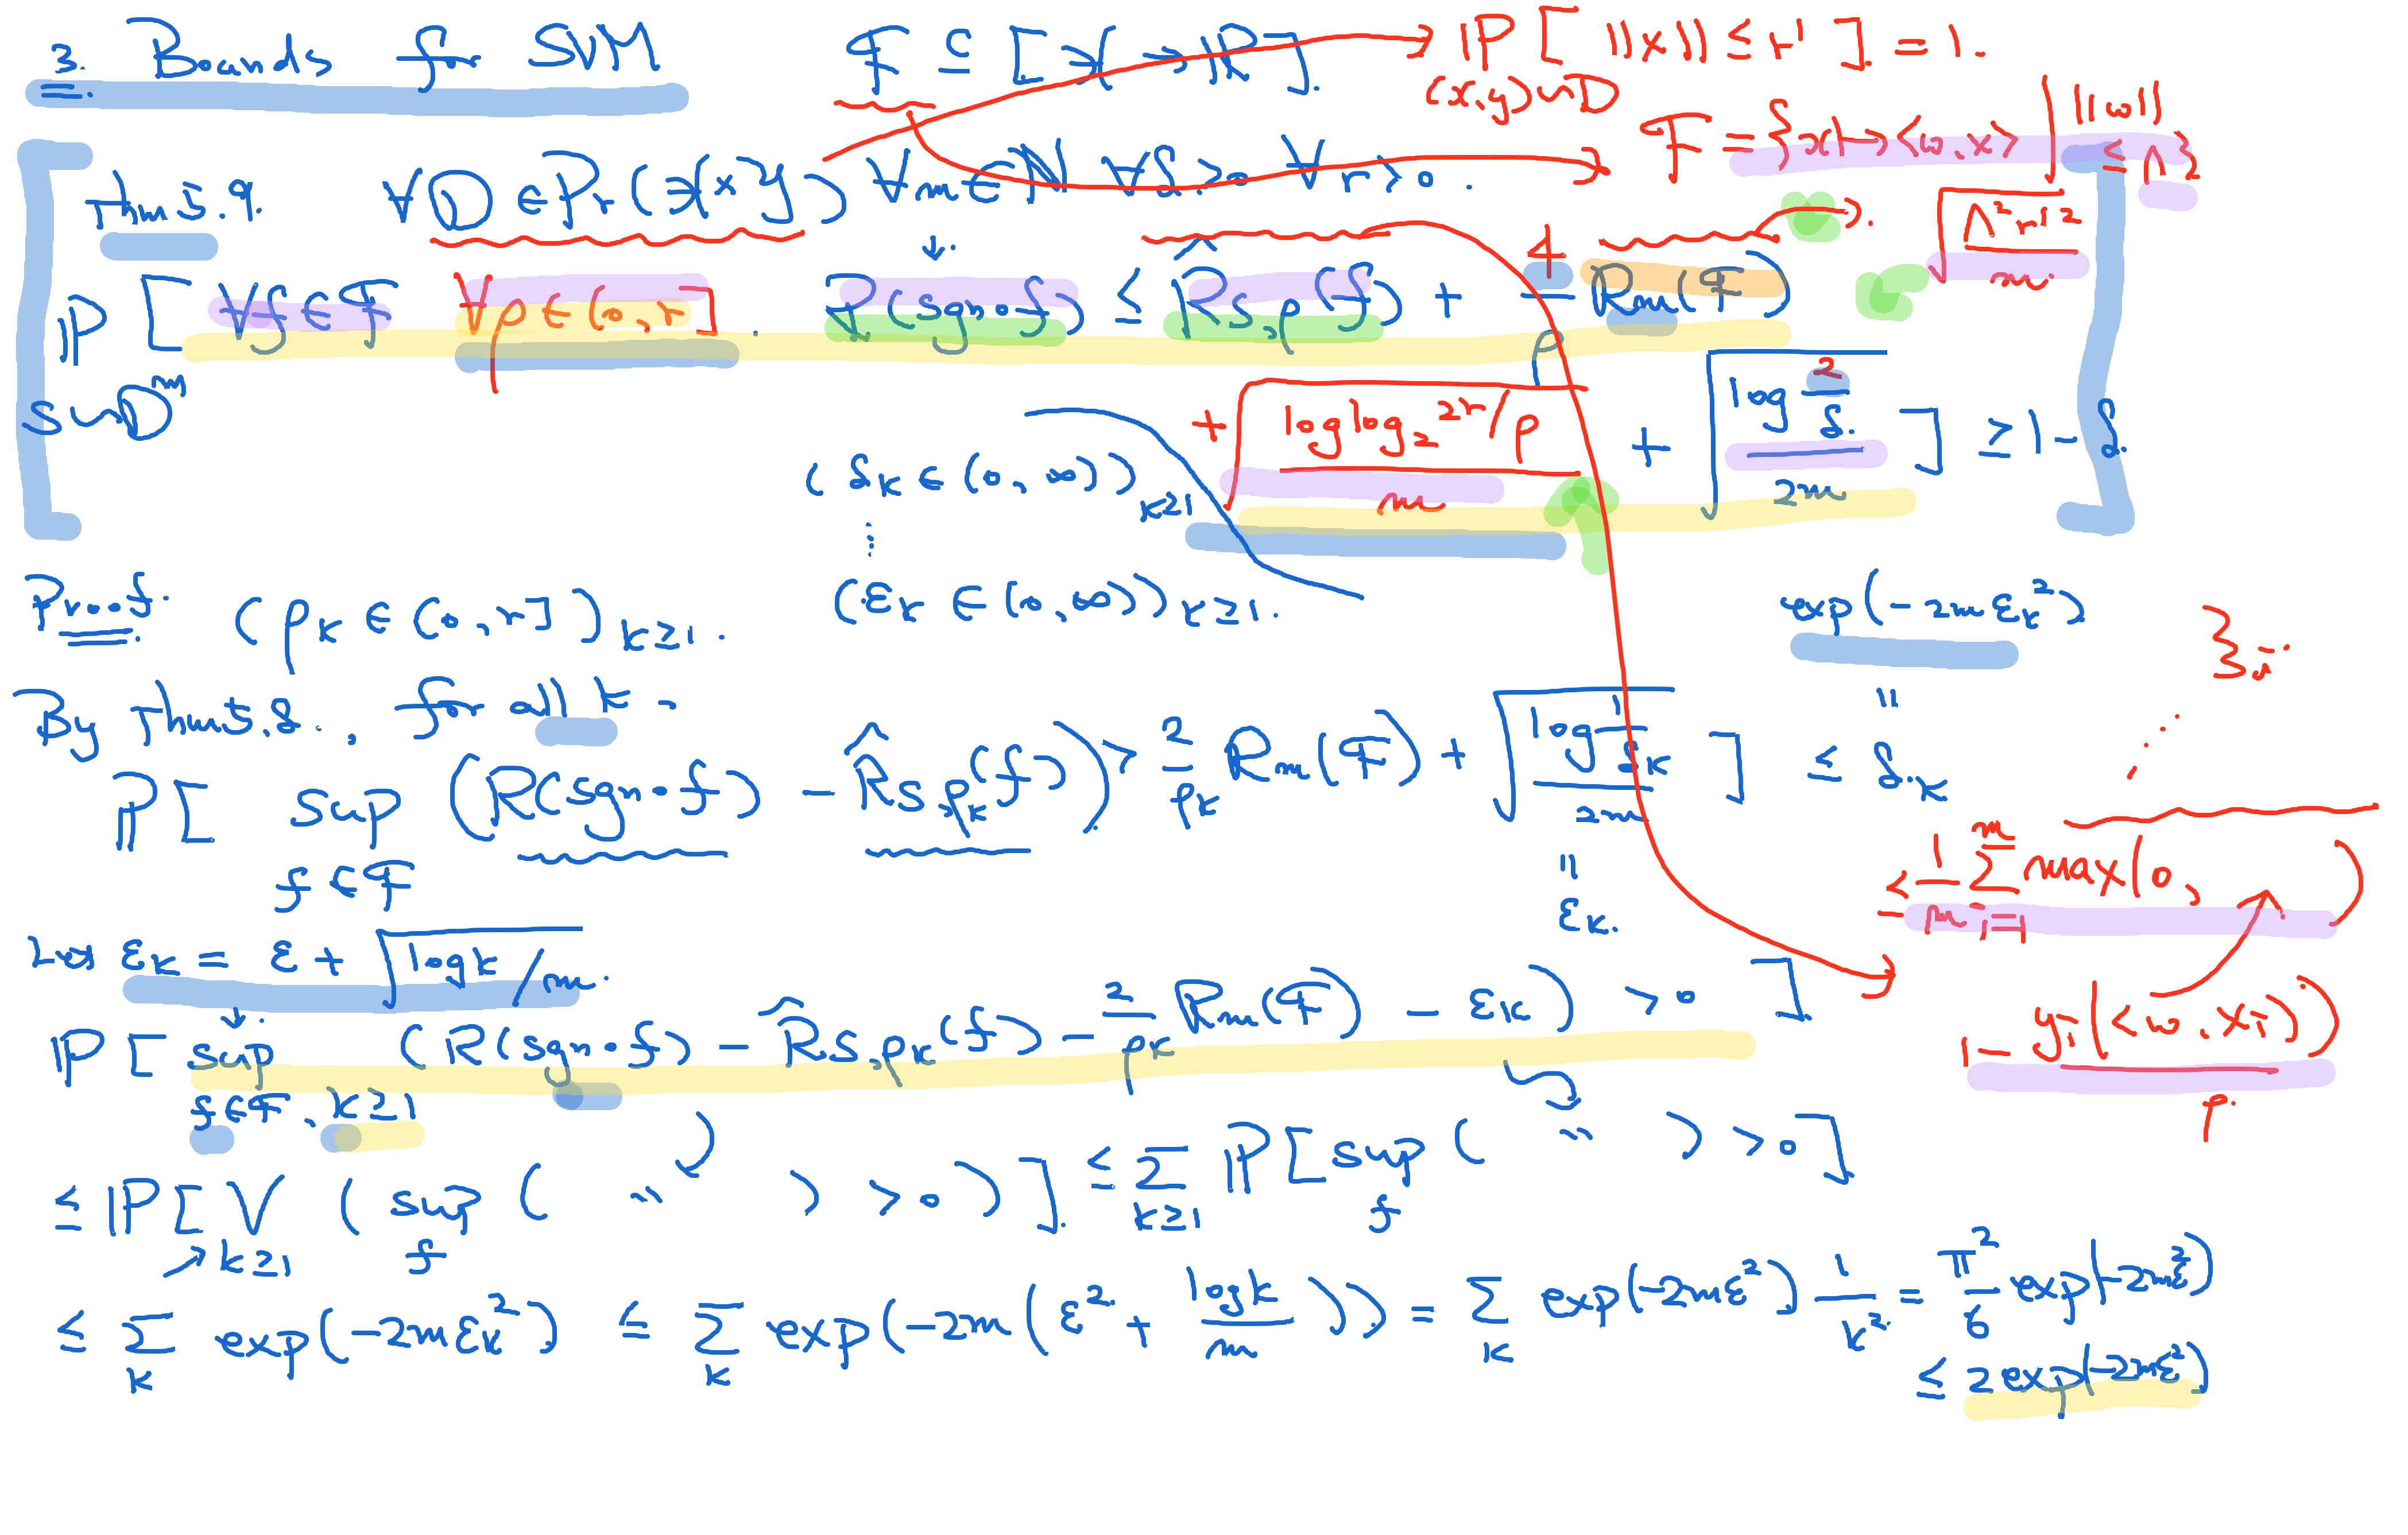 3. Bounds for SVM    F ⊆ [X → ℝ].    ℙ_{(x,y)~D} [ ||x|| ≤ r' ] = 1.
F = { x ↦ <w,x> | ||w|| ≤ Λ }
Thm 5.9.    ∀D ∈ Pr(X×Y) ∀m∈ℕ ∀δ>0 ∀r>0.
√(Λ²r'²/m)
ℙ_{S~D^m} [ ∀f∈F ∀ρ∈(0,r]. R(sgn∘f) ≤ R̂_{S,ρ}(f) + 4/ρ R_m(F)
+ √(log log₂ 2r/ρ / m) + √(log 2/δ / 2m) ] ≥ 1-δ.
(δ_k ∈ (0,∞))_{k≥1}
⋮
Proof.    (ρ_k ∈ (0,r])_{k≥1}.    (ε_k ∈ (0,∞))_{k≥1}.    exp(-2mε_k²)
By Thm 5.8., for all k,    "
ℙ[ sup_{f∈F} (R(sgn∘f) - R̂_{S,ρ_k}(f)) > 2/ρ_k R_m(F) + √(log 1/δ_k / 2m) ] ≤ δ_k
"
ε_k.
≤ 1/m Σ_{i=1}^m max(0, )
1 - y_i(<w,x_i>)/ρ
Let ε_k = ε + √(log k / m).
ℙ[ sup_{f∈F, k≥1} (R(sgn∘f) - R̂_{S,ρ_k}(f) - 2/ρ_k R_m(F) - ε_k) > 0 ]
≤ ℙ[ ⋁_{k≥1} ( sup_f ( " ) > 0 ) ]. ≤ Σ_{k≥1} ℙ[ sup_f ( " ) > 0 ]
≤ Σ_k exp(-2mε_k²) ≤ Σ_k exp(-2m(ε² + log k / m)) = Σ_k exp(-2mε²) 1/k² = π²/6 exp(-2mε²)
≤ 2exp(-2mε²)